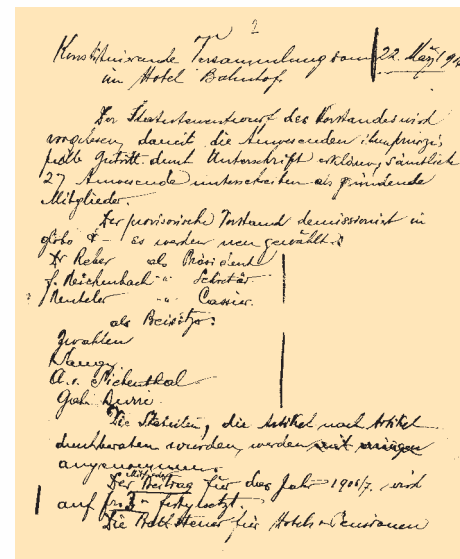 2
Konstituirende Versammlung vom 22. März 190
im Hotel Bahnhof.
Der Statutenentwurf des Vorstandes wird
vorgelesen, damit die Anwesenden ihren prinzi-
pielle Zutritt durch Unterschrift erklären, sämtlich
27 Anwesende unterschreiben als gründende
Mitglieder.
Der provisorische Vorstand demissioniert in
globo & es werden neu gewählt:
Dr Reber als Präsident
f. Reichenbach " Sekretär
Cassier.
als Beisitzer:
Zwahlen
A. v. Siebenthal
Gab. Burri
Die Statuten, die Artikel nach Artikel
durchberaten wurden, werden mit einigen
angenommen.
Der Beitrag für das Jahr 1906/7. wird
auf frs 3 festgesetzt.
Die für Hotels & Pensionen